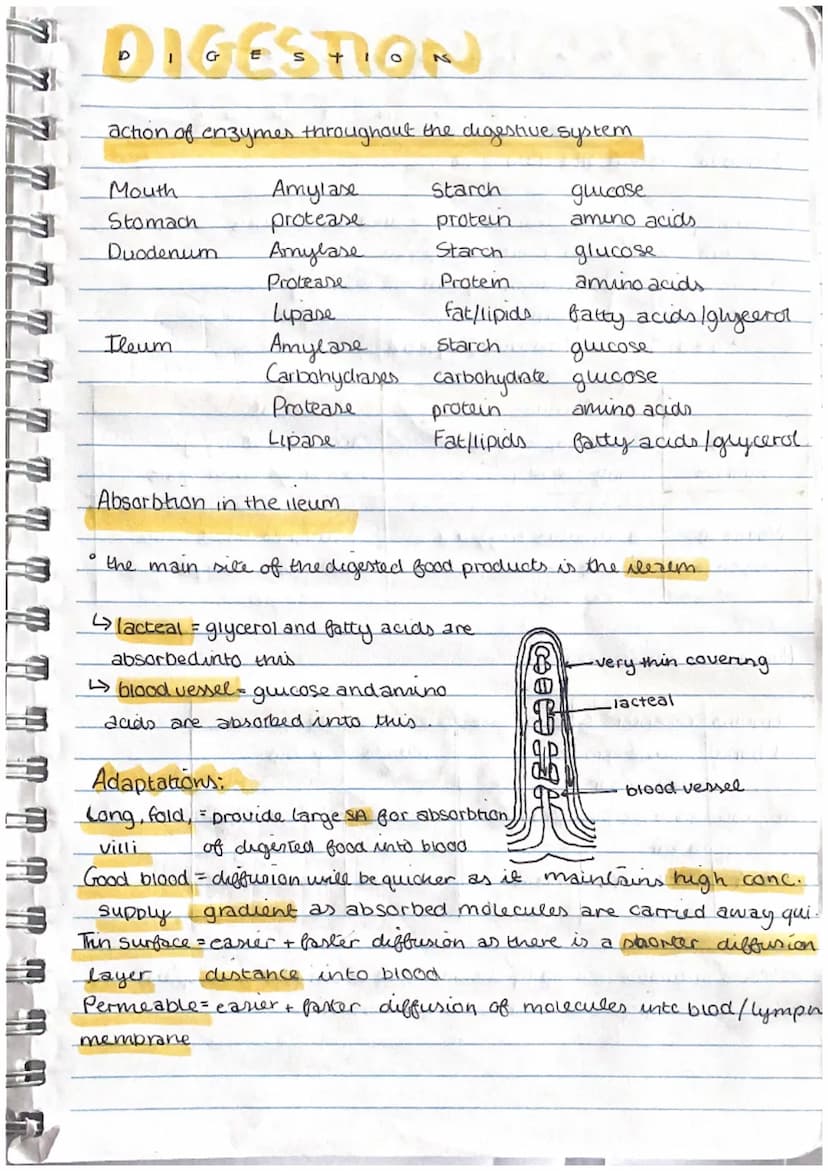 DIGESTION
DIGESTION
action of enzymes throughout the digestive system
Mouth Amylase Starch glucose
Stomach protease protein amino acids
Duodenum Amylase Starch glucose
Protease Protein amino acids
Lipase fat/lipids fatty acids/glycerol
Ileum Amylase Starch glucose
Carbohydrases carbohydrate glucose
Protease protein amino acids
Lipase Fat/lipids fatty acids/glycerol
Absorbtion in the ileum
• the main site of the digested food products is the
↳ lacteal = glycerol and fatty acids are
absorbed into this
↳ blood vessel = glucose and amino
acids are absorbed into this.
very thin covering
lacteal
blood vessel
Adaptations:
Long, fold, = provide large SA for absorbtion
villi of digested food into blood
Good blood = diffusion will be quicker as it maintains high conc.
supply gradient as absorbed molecules are carried away qui.
Thin surface = easier + faster diffusion as there is a shorter diffusion
layer distance into blood
Permeable = easier + faster diffusion of molecules into blod/lymph
membrane